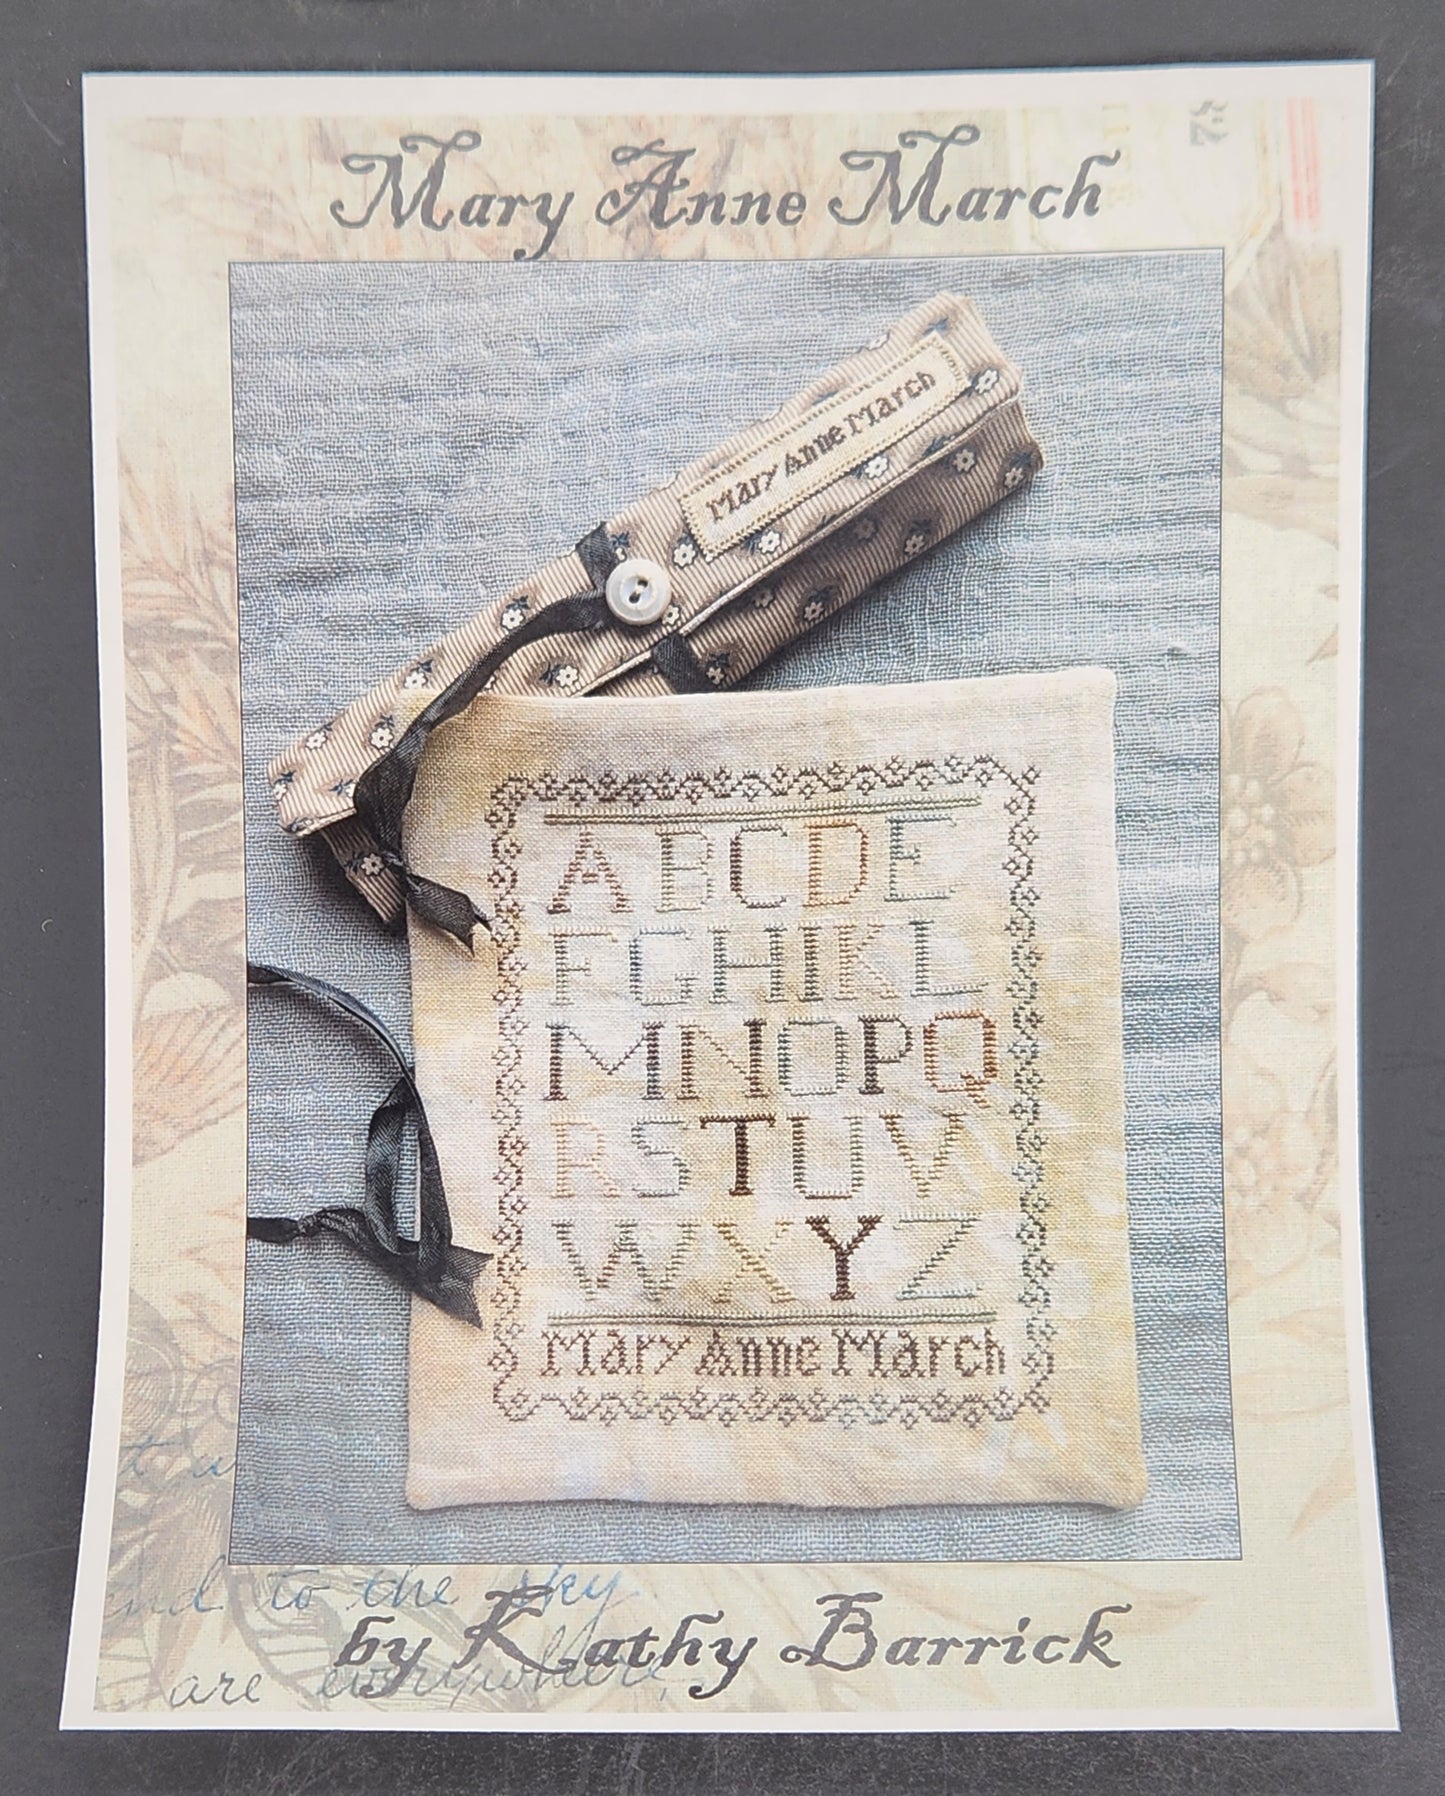 Mary Anne March
Mary Anne March
ABCDE
FGHIKL
MNOPQ
RSTUV
WXYZ
Mary Anne March
to the sky
by Kathy Barrick
are everywhere